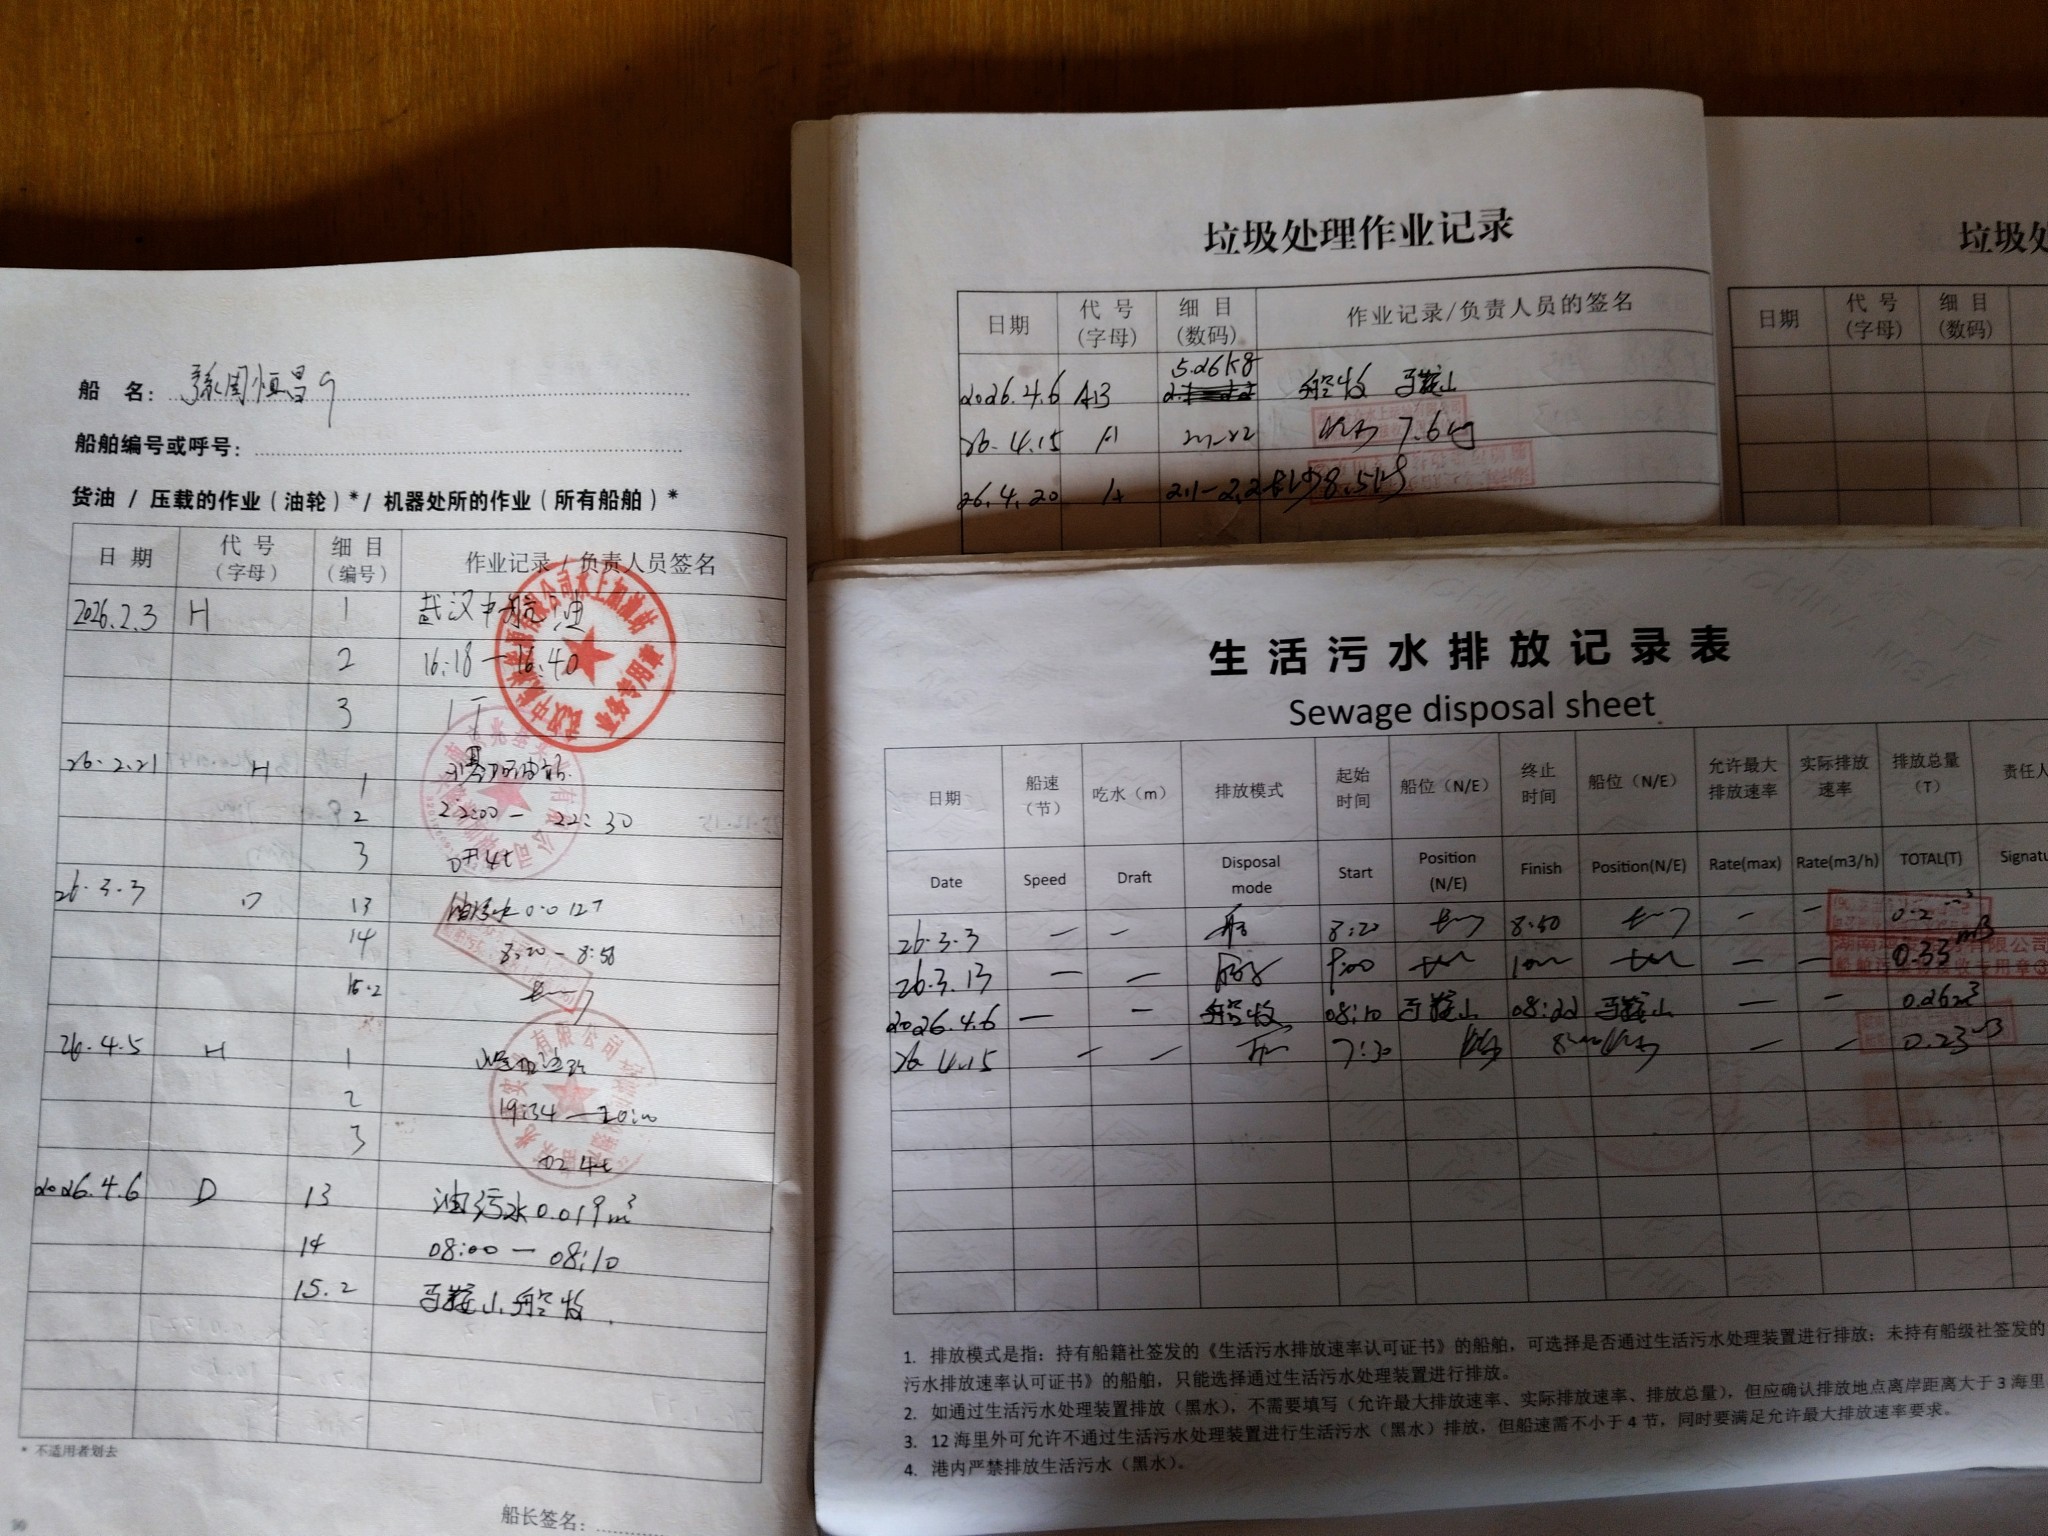 船 名： 豫周恒昌9
船舶编号或呼号：
货油 / 压载的作业（油轮）*/ 机器处所的作业（所有船舶）*
日 期 代 号（字母） 细 目（编号） 作业记录 / 负责人员签名
2026.2.3 H 1 武汉中航油
2 16:18－16:40
3 1T
26.2.21 H 1
2 22:00－22:30
3 4t
26.3.3 D 13 油污水0.012T
14 8:20－8:50
15.2 长
26.4.5 H 1 加油站
2 19:34－20:00
3 4t
2026.4.6 D 13 油污水0.019m³
14 08:00－08:10
15.2 马鞍山船收
* 不适用者划去
船长签名：
垃圾处理作业记录
日期 代 号（字母） 细 目（数码） 作业记录/负责人员的签名
2026.4.6 AB 5.26kg 船收 马鞍山
26.4.15 A 2.1-2.2 7.6kg
26.4.20 A 2.1-2.2 长沙8.5kg
垃圾处
日期 代 号（字母） 细 目（数码）
生活污水排放记录表
Sewage disposal sheet
日期 船速（节） 吃水（m） 排放模式 起始时间 船位（N/E） 终止时间 船位（N/E） 允许最大排放速率 实际排放速率 排放总量（T） 责任人
Date Speed Draft Disposal mode Start Position (N/E) Finish Position(N/E) Rate(max) Rate(m3/h) TOTAL(T) Signatu
26.3.3 — — 船 8:20 8:50 — — 0.2 m³
26.3.13 — — 9:00 — — 0.33 m³
2026.4.6 — — 船收 08:10 马鞍山 08:22 马鞍山 — — 0.26m³
26.4.15 — — 7:30 — — 0.23m³
1. 排放模式是指：持有船籍社签发的《生活污水排放速率认可证书》的船舶，可选择是否通过生活污水处理装置进行排放；未持有船级社签发的
污水排放速率认可证书》的船舶，只能选择通过生活污水处理装置进行排放。
2. 如通过生活污水处理装置排放（黑水），不需要填写（允许最大排放速率、实际排放速率、排放总量），但应确认排放地点离岸距离大于 3 海里
3. 12 海里外可允许不通过生活污水处理装置进行生活污水（黑水）排放，但船速需不小于 4 节，同时要满足允许最大排放速率要求。
4. 港内严禁排放生活污水（黑水）。